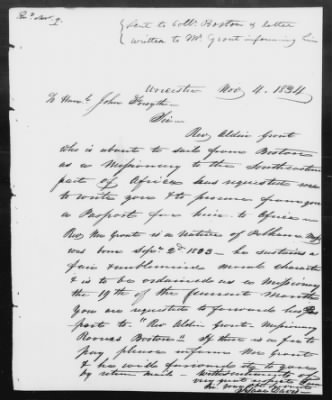 Sent to Coll. Boston & letter
written to Mr Grout informing him
Worcester Nov 4. 1834
To Honle John Forsyth
Sir
Rev. Aldin Grout
who is about to sail from Boston
as a Missionary to the Southeastern
part of Africa has requested me
to write you & to procure from you
a Pasport for him to Africa
Rev Mr Grout is a Native of Pelham
was born Sept 2d 1803 he sustains a
fair & unblemished moral character
& is to be ordained as a Missionary
the 19th of the present Month
You are requested to forward his Pas
port to "Rev Aldin Grout Missionary
Rooms Boston" If there is a fee to
pay please inform Mr Grout
& he will forward it to you
by return mail With sentiments of
very great respect I am